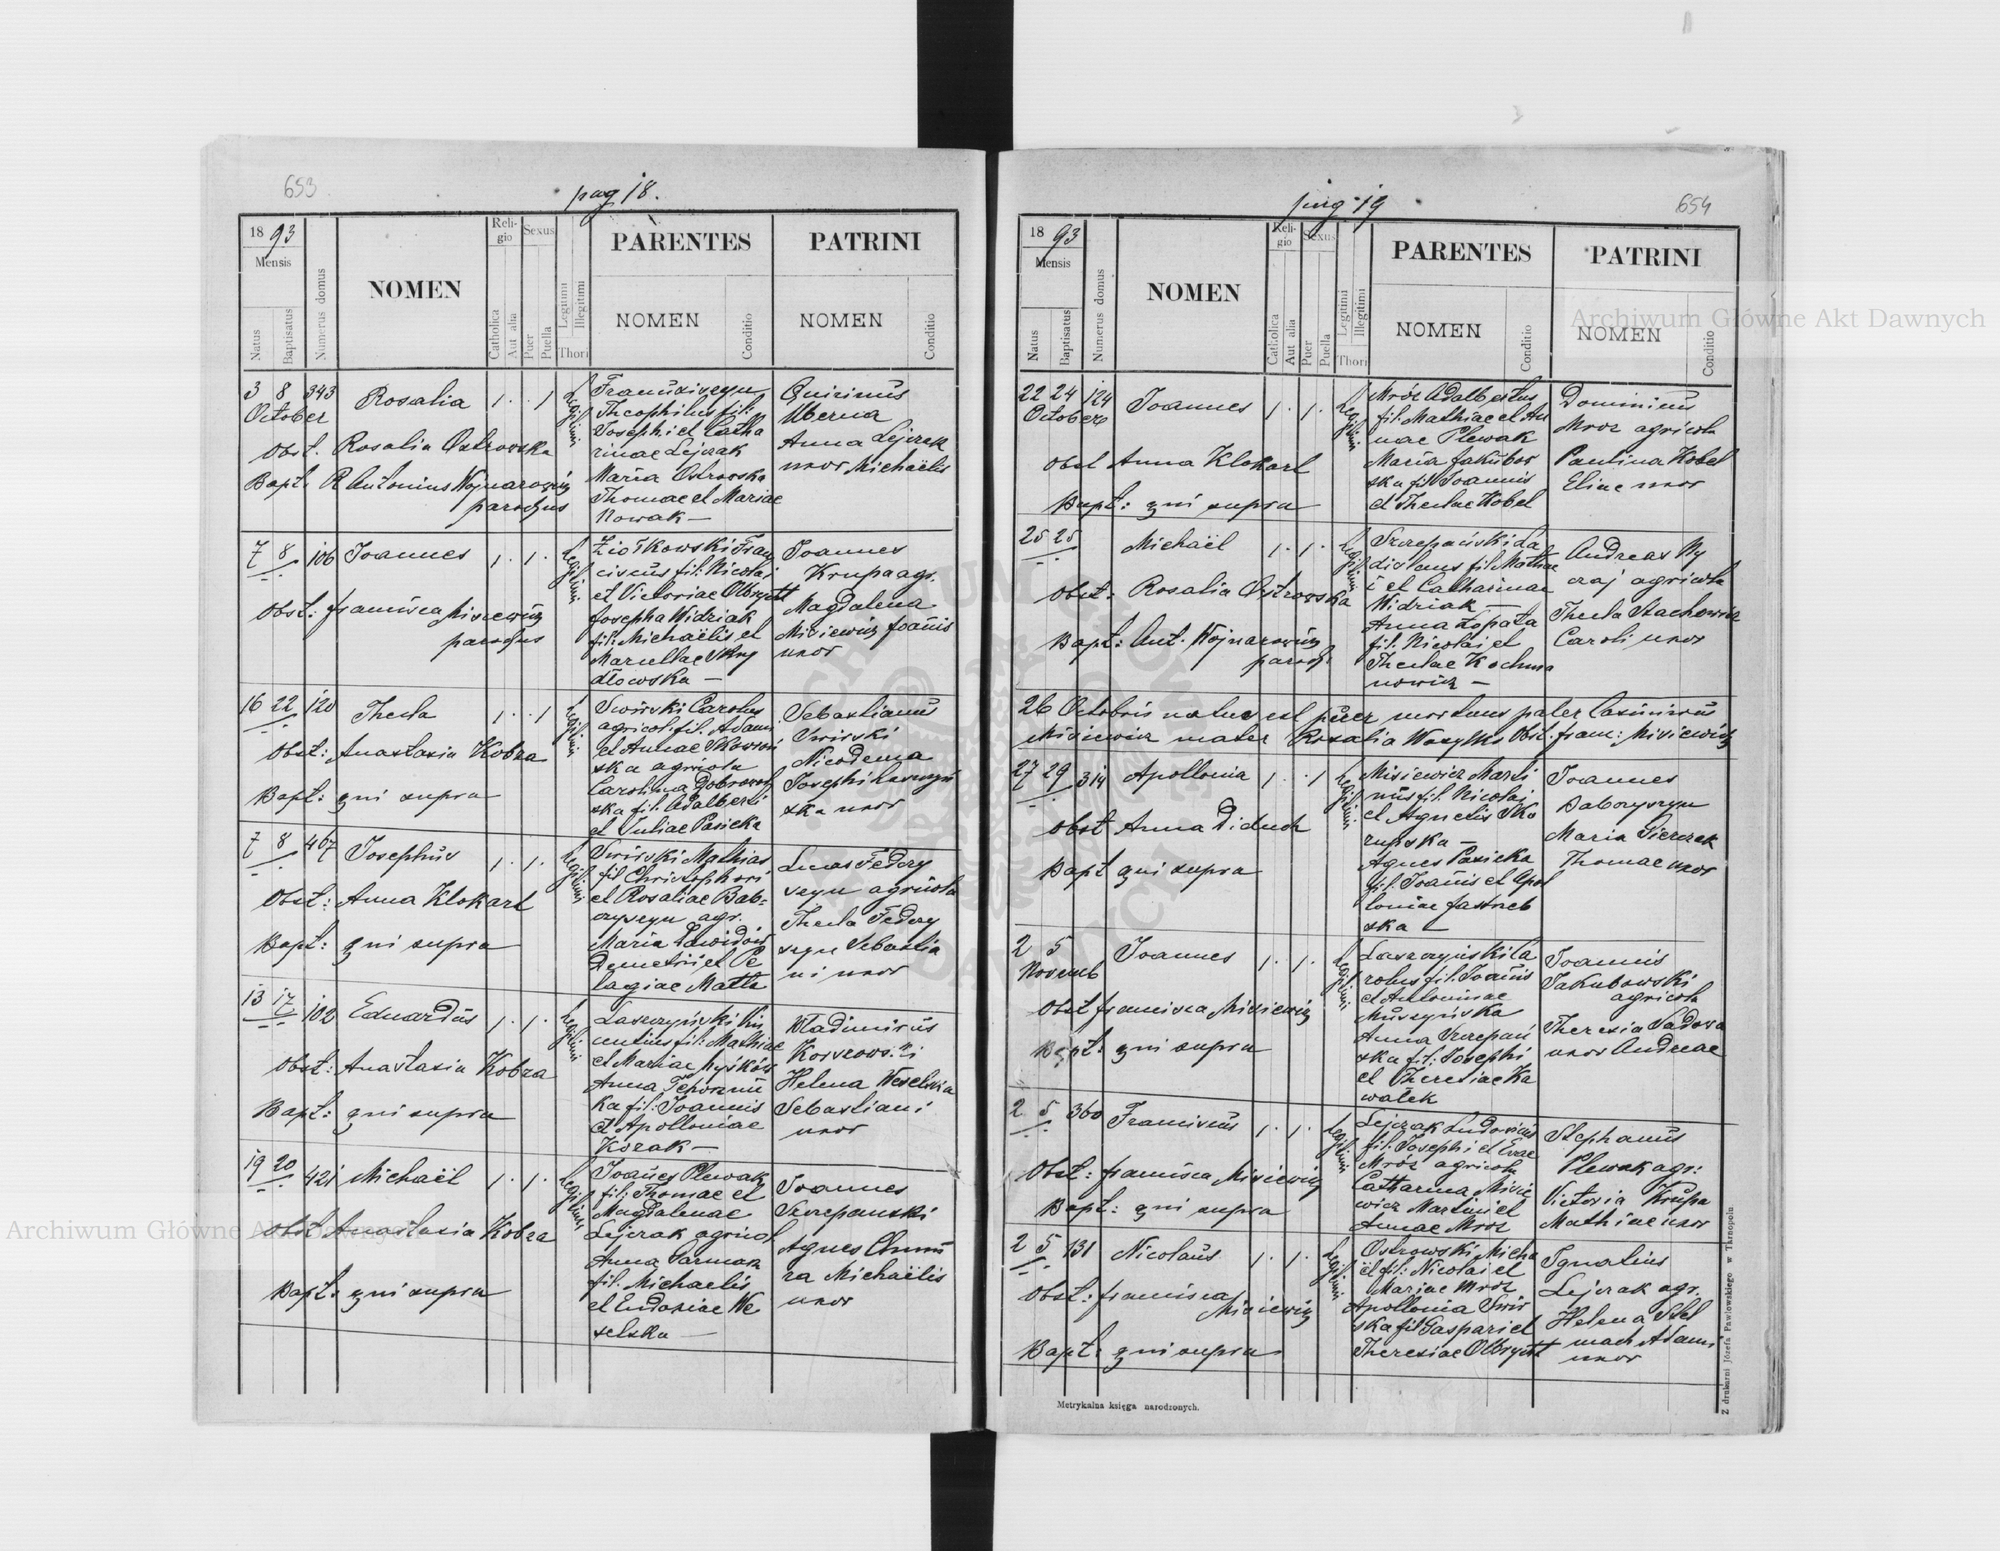 653
pag 18.
1893
Mensis
Natus
Baptisatus
Numerus domus
NOMEN
Religio
Catholica
Aut alia
Sexus
Puer
Puella
Legitimi
Illegitimi
Thori
PARENTES
NOMEN
Conditio
PATRINI
NOMEN
Conditio
3 8 343
October
Rosalia
1. .1
Legitimi
Theophilus fil:
Josephi et Catha
rinae Lejczak
Maria Ostrowska
Thomae et Mariae
Nowak —
Quirinus
Anna Lejczak
uxor Michaëlis
Obst. Rosalia Ostrowska
Bapt: R Antonius Wojnarowicz
parochus
7 8 106
Joannes
1. 1.
Legitimi
Ziołkowski Fran
ciscus fil: Nicolai
et Victoriae Olbrycht
Josepha Widziak
fil: Michaëlis et
Marcellae
Joannes
Krupa agr.
Magdalena
Misiewicz Joañis
uxor
Obst: Francisca Misiewicz
parochus
16 22 120
Thecla
1. .1
Legitimi
Swirski Carolus
agricol. fil. Adami
et Annae
ska agricola
Carolina Dobrowol
ska fil. Adalberti
et Juliae Pasieka
Sebastianus
Swirski
Nicodema
Josephi
ska uxor
Obst: Anastasia Kobza
Bapt: qui supra
7 8 467
Josephus
1. 1.
Legitimi
Swirski Mathias
fil Christophori
et Rosaliae Bab=
agr.
Maria
Demetrii et Pe
lagiae
Lucas Fedory
szyn agricola
Thecla Fedory
szyn Sebastia
ni uxor
Obst: Anna Klokart
Bapt: qui supra
13 17 102
Eduardus
1. 1.
Legitimi
Laszczyński Vin
centius fil: Mathiae
et Mariae
Anna
ka fil: Joannis
et Apolloniae
Kozak —
Wladimirus
Helena
Sebastiani
uxor
Obst: Anastasia Kobza
Bapt: qui supra
19 20 421
Michaël
1. 1.
Legitimi
Joañes Plewak
fil: Thomae et
Magdalenae
Lejczak agricol
Anna
fil. Michaelis
et Eudoxiae We
selska —
Joannes
Szczepanski
Agnes
ra Michaëlis
uxor
Obst Anastasia Kobza
Bapt: qui supra
pag 19
654
1893
Mensis
Natus
Baptisatus
Numerus domus
NOMEN
Religio
Catholica
Aut alia
Sexus
Puer
Puella
Legitimi
Illegitimi
Thori
PARENTES
NOMEN
Conditio
PATRINI
NOMEN
Conditio
22 24 124
October
Joannes
1. 1.
Legitimi
Mróz Adalbertus
fil. Mathiae et An
nae Plewak
Maria Jakubow
ska fil Joannis
et Theclae Kobel
Dominicus
Mroz agricola
Paulina Kobel
Eliae uxor
Obst Anna Klokart
Bapt: qui supra
25 25
Michaël
1. 1.
Legitimi
Szczepański La
dislaus fil Mathae
i et Catharinae
Widziak —
Anna Łopata
fil. Nicolai et
Theclae Kochma
nowicz —
Andreas Wy
agricola
Thecla Stachowicz
Caroli uxor
Obst: Rosalia Ostrowska
Bapt: Ant. Wojnarowicz
paroch.
26 Octobris natus est puer mortuus pater Casimirus
Misiewicz mater Rosalia Obst: Fran: Misiewicz
27 29 314
Apollonia
1. .1
Legitimi
Misiewicz Marti
nus fil. Nicolai
et Agnetis Sko
rupska —
Agnes Pasieka
fil. Joañis et Apol
loniae Jastrzeb
ska —
Joannes
Maria
Thomae uxor
Obst Anna Diduch
Bapt qui supra
2 5
Novemb
Joannes
1. 1.
Legitimi
Laszczyński Ca
rolus fil. Joañis
et Antoninae
Anna Szczepań
ska fil: Josephi
et Theresiae Ka
walek
Joannis
Jakubowski
agricola
Theresia
uxor Andreae
Obst Francisca Misiewicz
Bapt: qui supra
2 5 360
Franciscus
1. 1.
Legitimi
Lejczak Ludovicus
fil: Josephi et Evae
Mróz agricola
Catharina Misie
wicz Martini et
Annae Mroz
Stephanus
Plewak agr:
Victoria Krupa
Mathiae uxor
Obst: Francisca Misiewicz
Bapt: qui supra
2 5 131
Nicolaus
1. 1.
Legitimi
Ostrowski Micha
ël fil: Nicolai et
Mariae Mroz
Apollonia Swir
ska fil Gaspari et
Theresiae Olbrycht
Ignatius
Lejczak agr.
Helena Stel
mach Adami
uxor
Obst: Francisca
Misiewicz
Bapt: qui supra
Metrykalna księga narodzonych.
Z drukarni Józefa Pawłowskiego w Tarnopolu
Archiwum Główne Akt Dawnych
Archiwum Główne Akt Dawnych